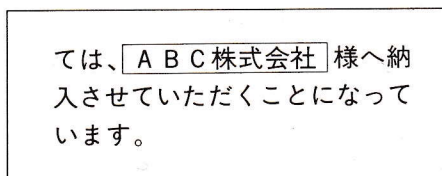 ては、ＡＢＣ株式会社様へ納
入させていただくことになって
います。